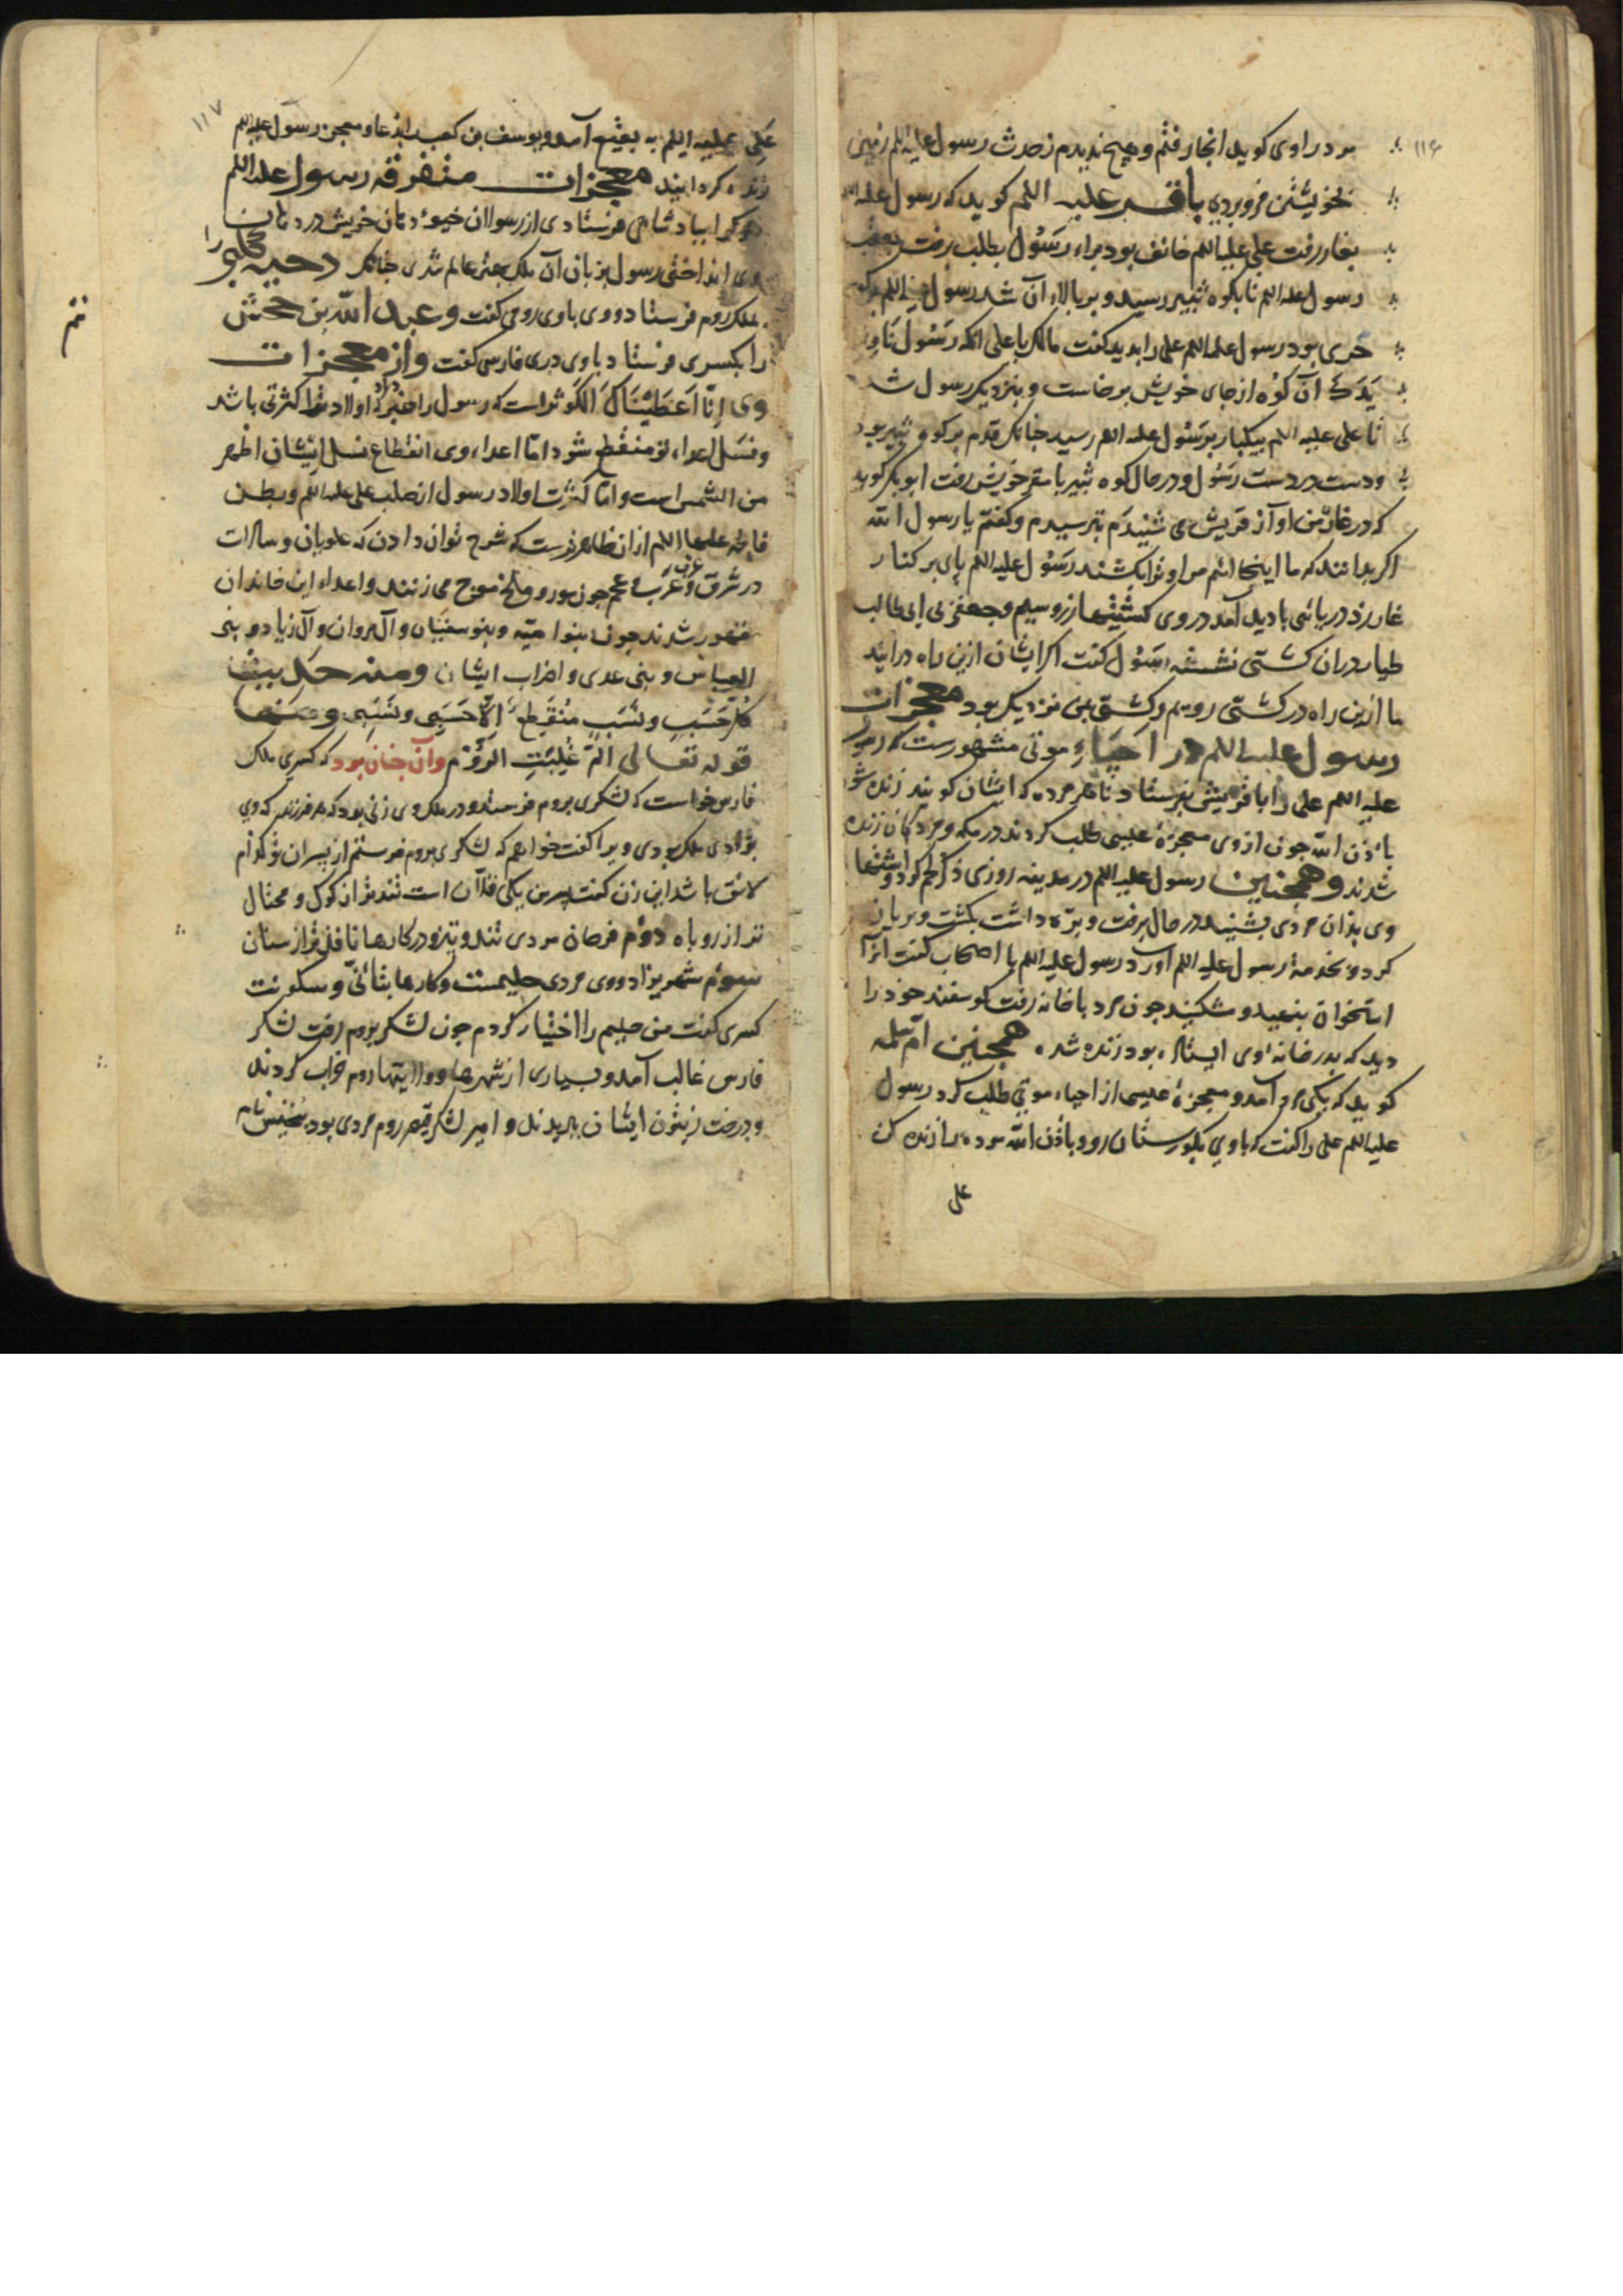 ۱۱۶
مرد راوی کوید انجا رفتم و هیچ ندیدم ز حدث رسول علیه اللم زمین
بخویشتن فرو بردی باقر علیه اللم کوید که رسول علیه
بغار رفت علی علیه اللم خائف بود براء رسول بطلب برفت بعقب
رسول علیه اللم تا بکوه ثبیر رسید و بر بالاء آن شد رسول علیه اللم بر کوه
حری بود رسول علیه اللم علی را بدید کفت مالک یا علی اکه رسول ناوِل
یَدَکَ آن کوه از جای خویش برخاست و بنزدیک رسول شد
تا علی علیه اللم بیکبار برسول علیه اللم رسید چنانک قدم بر کوه ثبیر بود
و دست در دست رسول و در حال کوه ثبیر با مقر خویش رفت ابو بکر کوید
که در غار من اواز قریش می شنیدم بترسیدم و کفتم یا رسول الله
اکر بدانند که ما اینجا ائیم مرا و ترا بکشند رسول علیه اللم پای بر کنار
غار زد دریائی بادید آمد در وی کشتیها از زر و سیم و جعفر بن ابی طالب
طیار دران کشتی نشسته رسول کفت اکر ایشان ازین راه درایند
ما ازین راه در کشتی رویم و کشتی بمن نزدیک بود معجزات
رسول علیه اللم در احیاءِ موتی مشهورست که رسول
علیه اللم علی را با قریش بفرستاد تا هر مرده که ایشان کویند زنده شود
باذن الله جون از وی معجزهٔ عیسی طلب کردند در مکه و مردکان زنده
شدند و همچنین رسول علیه اللم در مدینه روزی ذکر لحم کرد و اشتها
وی بدان مردی بشنید در حال برفت و بره داشت بکشت و بریان
کرد و بخدمة رسول علیه اللم آورد رسول علیه اللم با اصحاب کفت انرا
استخوان بنهید و مشکنید جون مرد با خانه رفت کوسفند خود را
دید که بدر خانهٔ وی ایستاده بود زنده شده همچنین ام سلمه
کوید که یکی مرد آمد و معجزهٔ عیسی از احیاء موتی طلب کرد رسول
علیه اللم علی را کفت که با وی بکورستان رو و باذن الله مرده را زنده کن
علی
۱۱۷
عَلِی علیه اللم به بقیع آمد و یوسف بن کعب را بدعا و معجز رسول علیه اللم
زنده کردانید معجزات متفرقه رسول علیه اللم
هر کرا ببادشاهی فرستادی از رسولان خیوء دهان خویش در دهان
وی انداختی رسول بزبان آن ملک یعنی عالم شدی چنانک دحیه کلبی را
بملک روم فرستاد و وی با وی رومی کفت و عبد الله بن جحش
را بکسری فرستاد با وی دری فارسی کفت و از معجزات
وی اِنّا اَعطَینَاکَ الکَوثر است که رسول را خبر داد که اولاد ترا کثرتی باشد
و نسل اعداء تو منقطع شود اما اعداء وی انقطاع نسل ایشان اظهر
من الشمس است و اما کثرت اولاد رسول از صلب علی علیه اللم و بطن
فاطمه علیها اللم ازان ظاهرترست که شرح توان دادن که علویان و سادات
در شرق و غرب عرب و عجم جون مور و ملخ موج می زنند و اعداء این خاندان
مقهور شدند جون بنو امیّه و بنو سفیان و آل مروان و آل زیاد و بنی
العباس و بنی عدی و اضراب ایشان ومنه حدیث
کل حَسَبٍ و نَسَبٍ مُنقَطِعٌ اِلّا حَسَبی و نَسَبی ومنها
قوله تعالی الم غُلِبَتِ الرّومُ و آن چنان بود که کسری ملک
فارس خواست که لشکری بروم فرستد و در ملک وی زنی بود که هر فرزند که وی
بزادی ملک بودی ویرا کفت خواهم که لشکری بروم فرستم از بسران تو کدام
لائق باشد این زن کفت پسر من یکی فلان است تندتر از کرک و محتال
تر از روباه دوم فرحان مردی تند و تیز و در کارها نافذتر از سنان
سوم شهریزاد و وی مردی حلیمست و کارها بتأنّی و سکونت
کسری کفت من حلیم را اختیار کردم جون لشکر بروم رفت لشکر
فارس غالب آمد و بسیاری از شهرها و ولایتها روم خراب کردند
و درخت زیتون ایشان ببریدند و امیر لشکر قیصر روم مردی بود